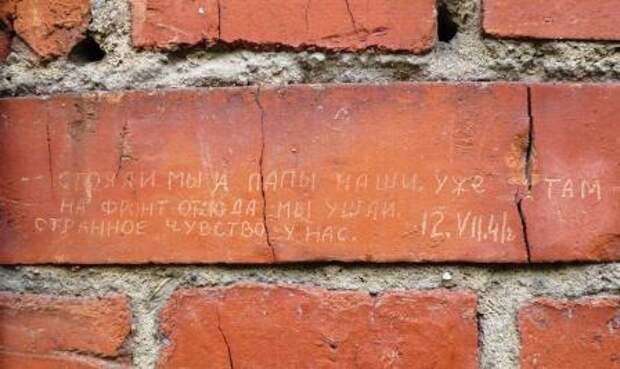 СТОЯЛИ МЫ А ПАПЫ НАШИ УЖЕ ТАМ
НА ФРОНТ ОТСЮДА МЫ УШЛИ.
СТРАННОЕ ЧУВСТВО У НАС. 12.VII.41г